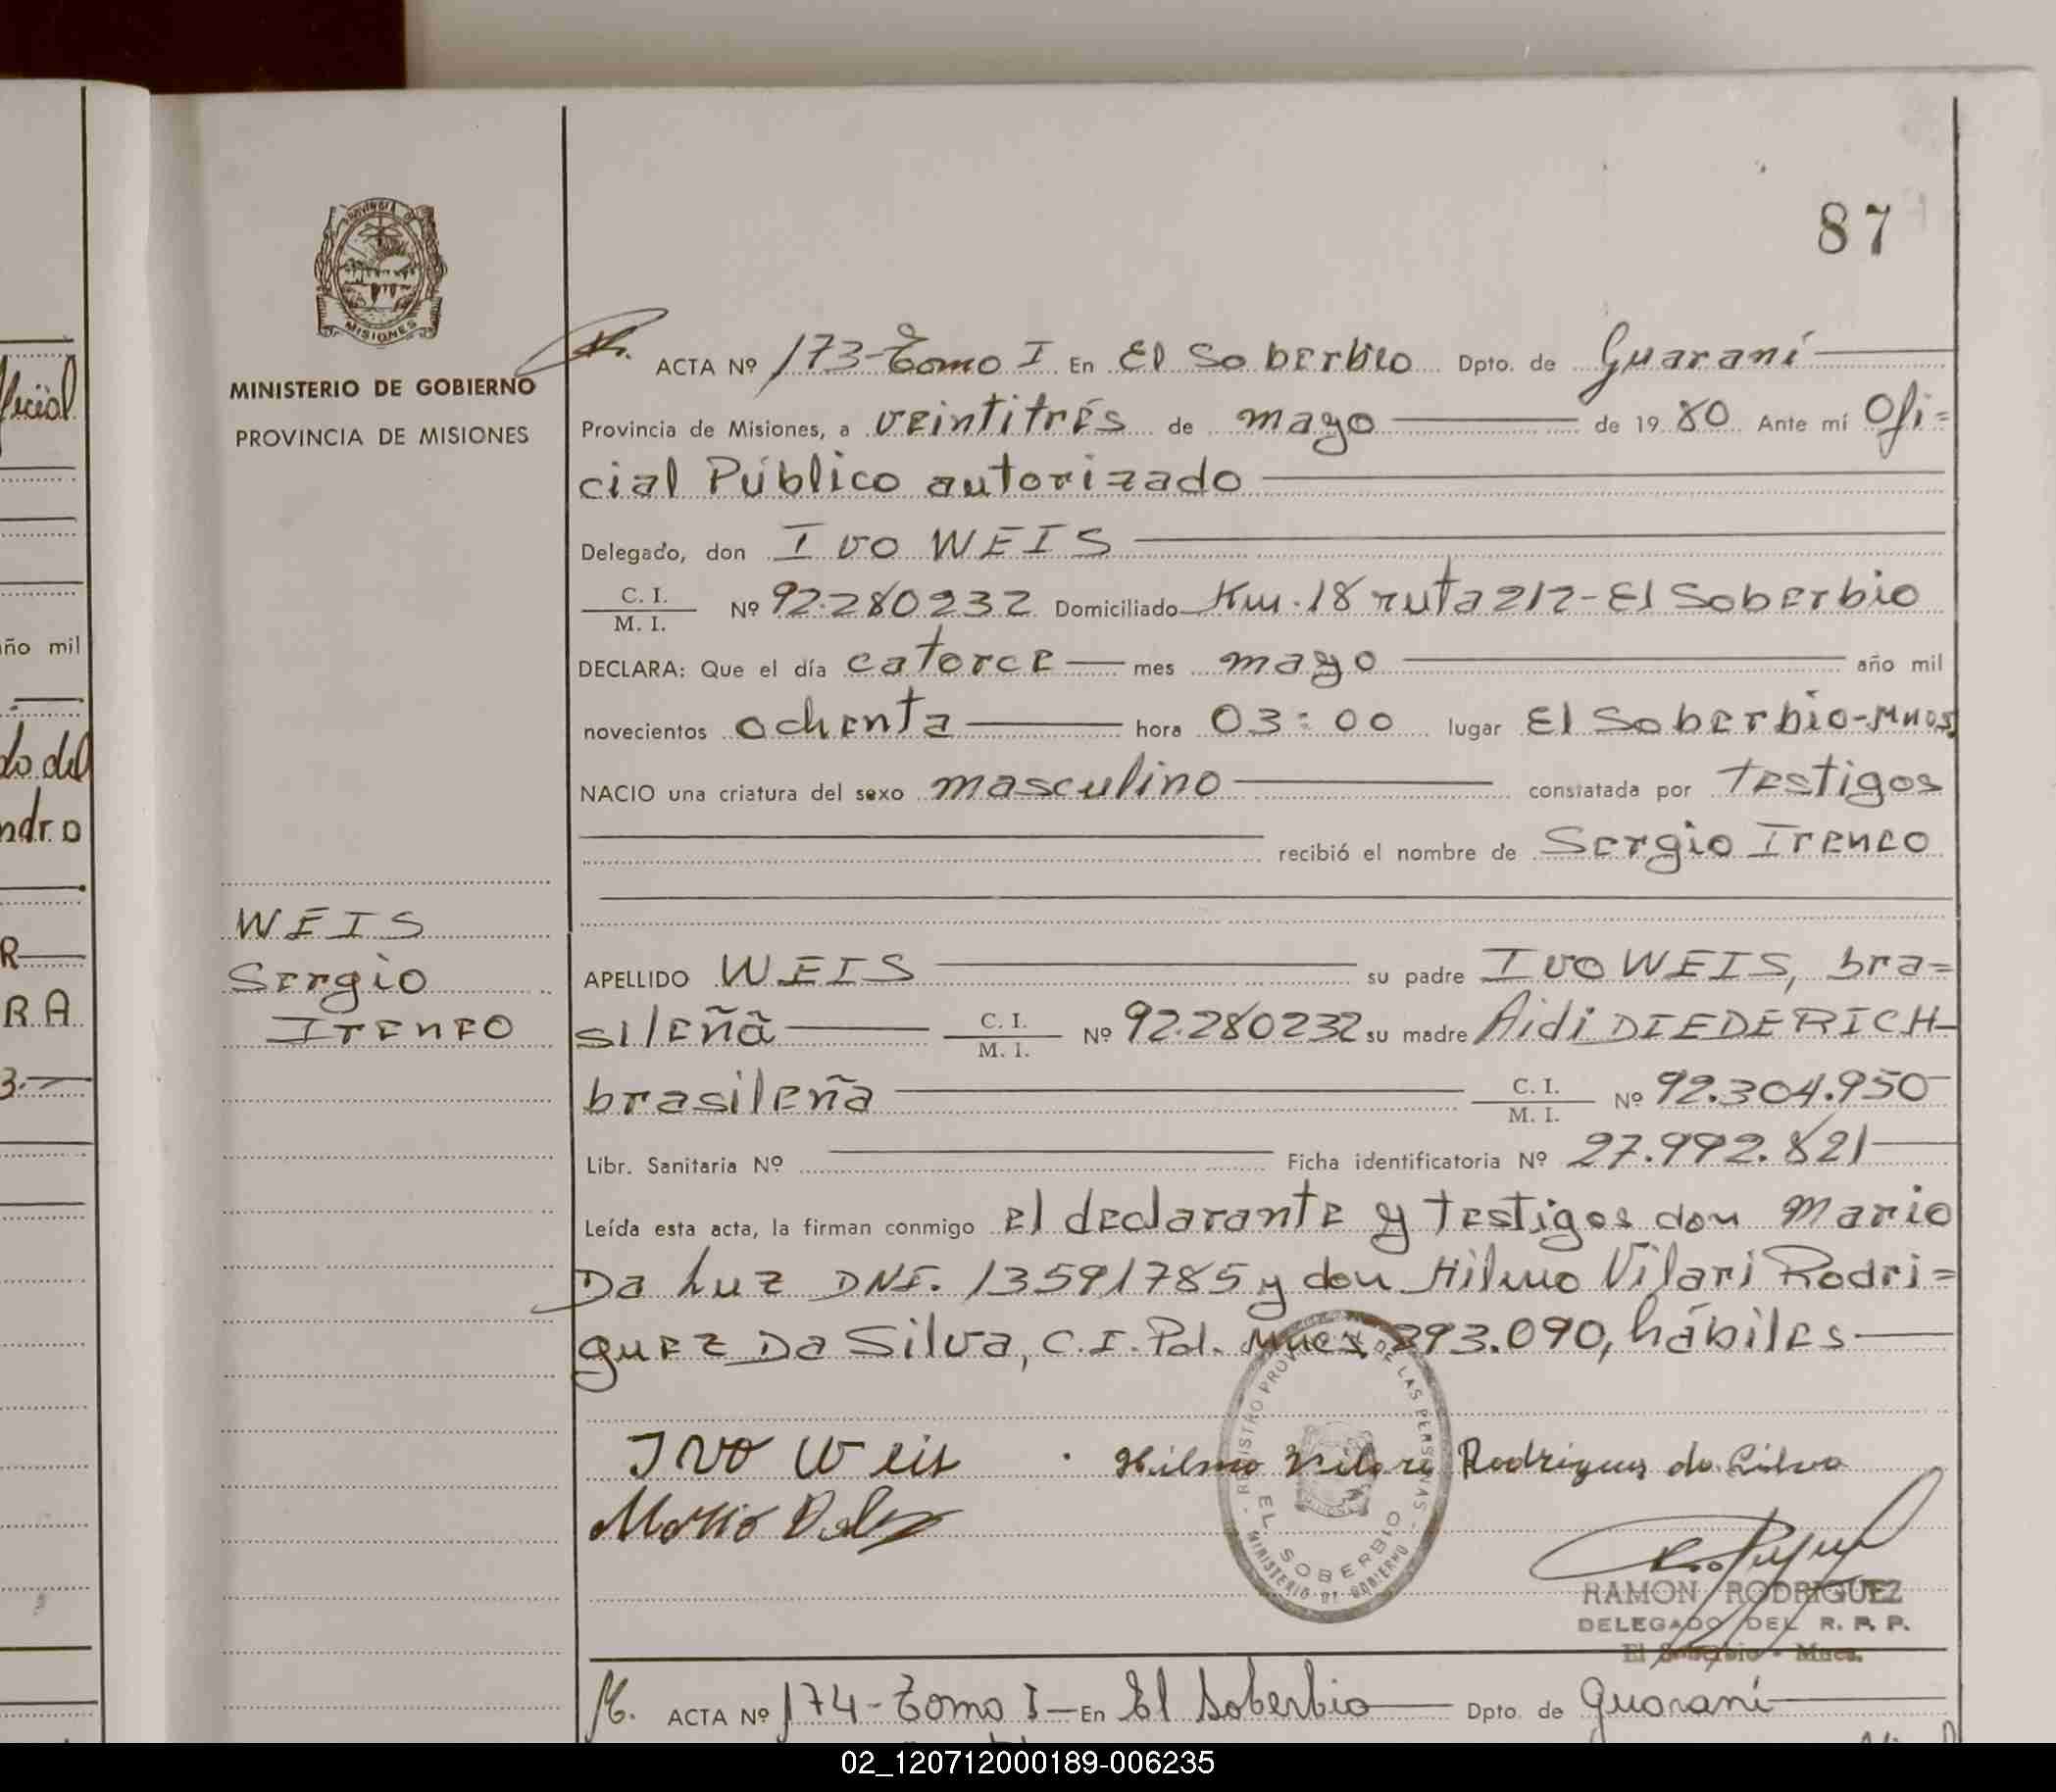 87
PROVINCIA DE
MISIONES
MINISTERIO DE GOBIERNO
PROVINCIA DE MISIONES
ACTA Nº 173-Tomo I En El Soberbio Dpto. de Guaraní
Provincia de Misiones, a veintitrés de mayo de 19 80 Ante mí Ofi=
cial Público autorizado
Delegado, don Ivo WEIS
C. I.
M. I. Nº 92.280232 Domiciliado Km. 18 ruta 212-El Soberbio
DECLARA: Que el día catorce mes mayo año mil
novecientos ochenta hora 03:00 lugar El Soberbio-Mnes.
NACIO una criatura del sexo masculino constatada por testigos
recibió el nombre de Sergio Ireneo
WEIS
Sergio
Ireneo
APELLIDO WEIS su padre Ivo WEIS, bra=
sileña C. I. M. I. Nº 92.280232 su madre Aidi DIEDERICH-
brasileña C. I. M. I. Nº 92.304.950
Libr. Sanitaria Nº Ficha identificatoria Nº 27.992.821
Leída esta acta, la firman conmigo el declarante y testigos don Mario
Da Luz DNI. 13591785 y don Hilmo Vilari Rodri=
guez Da Silva, C.I. Pol. Mnes 393.090, hábiles
Ivo Weis Hilmo Vilari Rodrigues da Silva
REGISTRO PROVINCIAL DE LAS PERSONAS
EL SOBERBIO
MINISTERIO DE GOBIERNO
RAMON RODRIGUEZ
DELEGADO DEL R. P. P.
El Soberbio - Mnes.
ACTA Nº 174-Tomo I-En El Soberbio Dpto. de Guaraní
ficial
año mil
do del
ndro
R
RA
3.
02_120712000189-006235